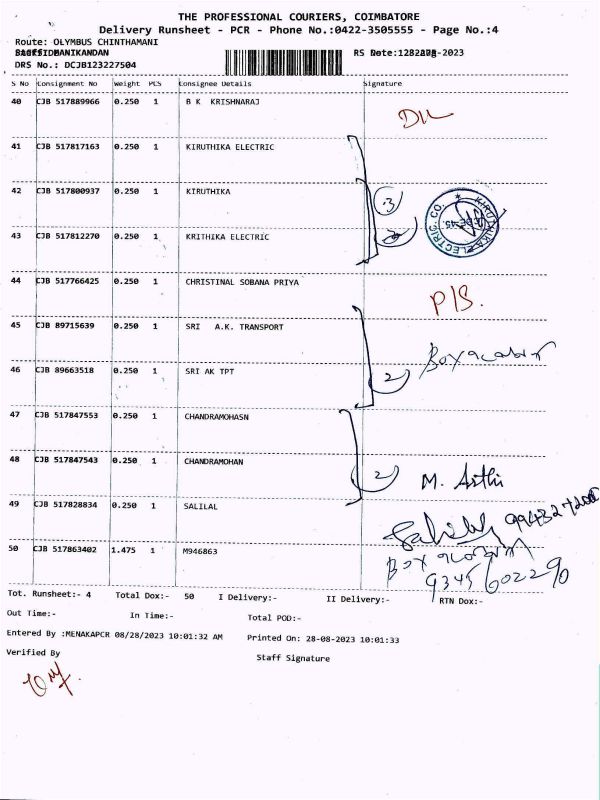 THE PROFESSIONAL COURIERS, COIMBATORE
Delivery Runsheet - PCR - Phone No.:0422-3505555 - Page No.:4
Route: OLYMBUS CHINTHAMANI
RS Date: 28-Aug-2023
DRS No.: DCJB123227504
S No Consignment No Weight PCS Consignee Details Signature
40 CJB 517889966 0.250 1 B K KRISHNARAJ
41 CJB 517817163 0.250 1 KIRUTHIKA ELECTRIC
42 CJB 517800937 0.250 1 KIRUTHIKA
3
43 CJB 517812270 0.250 1 KRITHIKA ELECTRIC
KIRUTHIKA ELECTRIC. CO.
44 CJB 517766425 0.250 1 CHRISTINAL SOBANA PRIYA
P/S.
45 CJB 89715639 0.250 1 SRI A.K. TRANSPORT
46 CJB 89663518 0.250 1 SRI AK TPT
2
47 CJB 517847553 0.250 1 CHANDRAMOHASN
48 CJB 517847543 0.250 1 CHANDRAMOHAN
2 M. Arthi
49 CJB 517828834 0.250 1 SALILAL
50 CJB 517863402 1.475 1 M946863
Tot. Runsheet:- 4 Total Dox:- 50 I Delivery:- II Delivery:- RTN Dox:-
Out Time:- In Time:- Total POD:-
Entered By :MENAKAPCR 08/28/2023 10:01:32 AM Printed On: 28-08-2023 10:01:33
Verified By Staff Signature